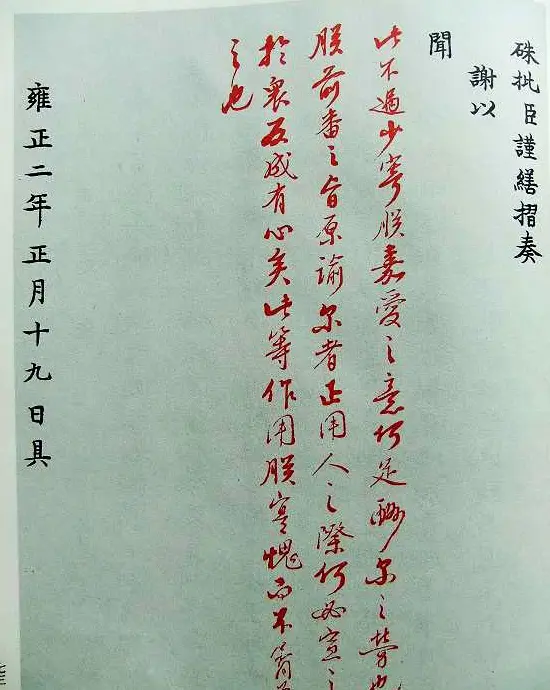 硃批臣謹繕摺奏
謝以
聞
此不過少寄朕嘉愛之意何足酬尔之勞也
朕前番之旨原諭尔者正用人之際何必宣之
於衆反成有心矣此等作用朕實愧而不肎為
之也
雍正二年正月十九日具